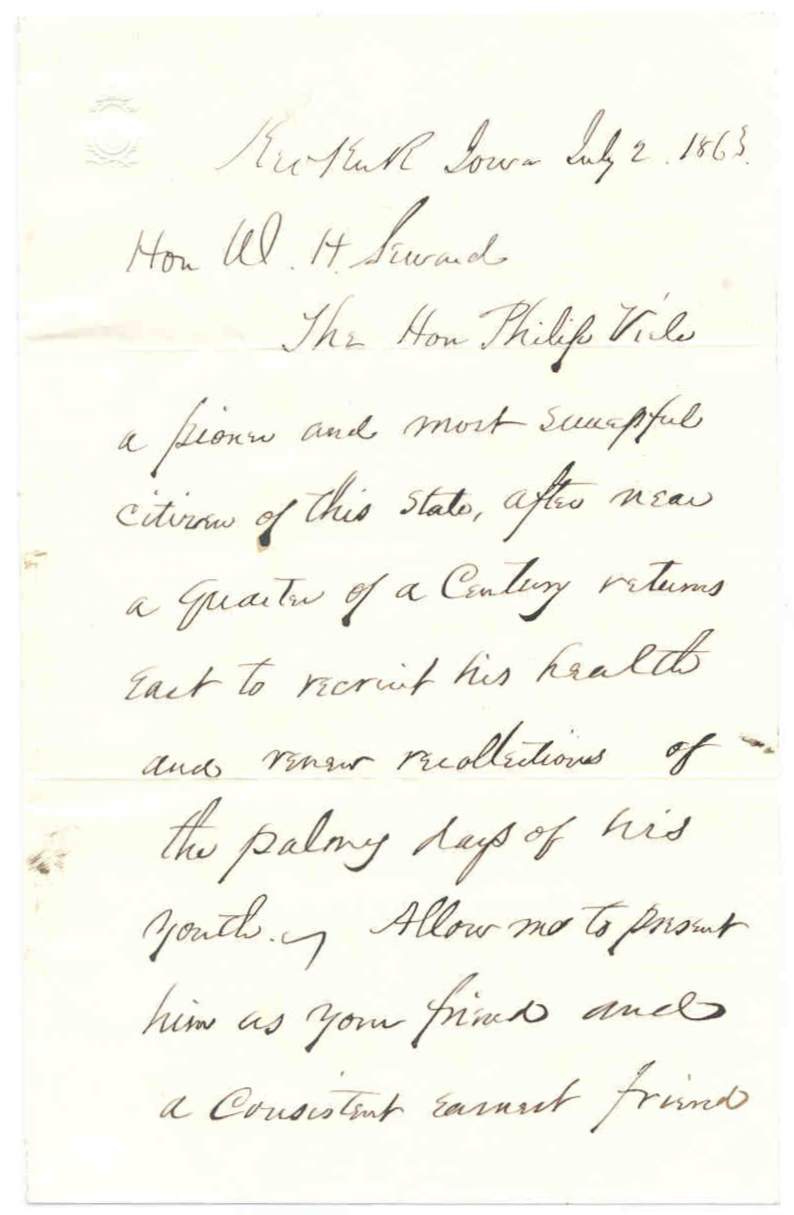 Keokuk Iowa July 2. 1863.
Hon W. H. Seward
The Hon Philip Viele
a pioneer and most successful
citizen of this State, after near
a quarter of a Century returns
East to recruit his health
and renew recollections of
the palmy days of his
youth. Allow me to present
him as your friend and
a Consistent earnest friend